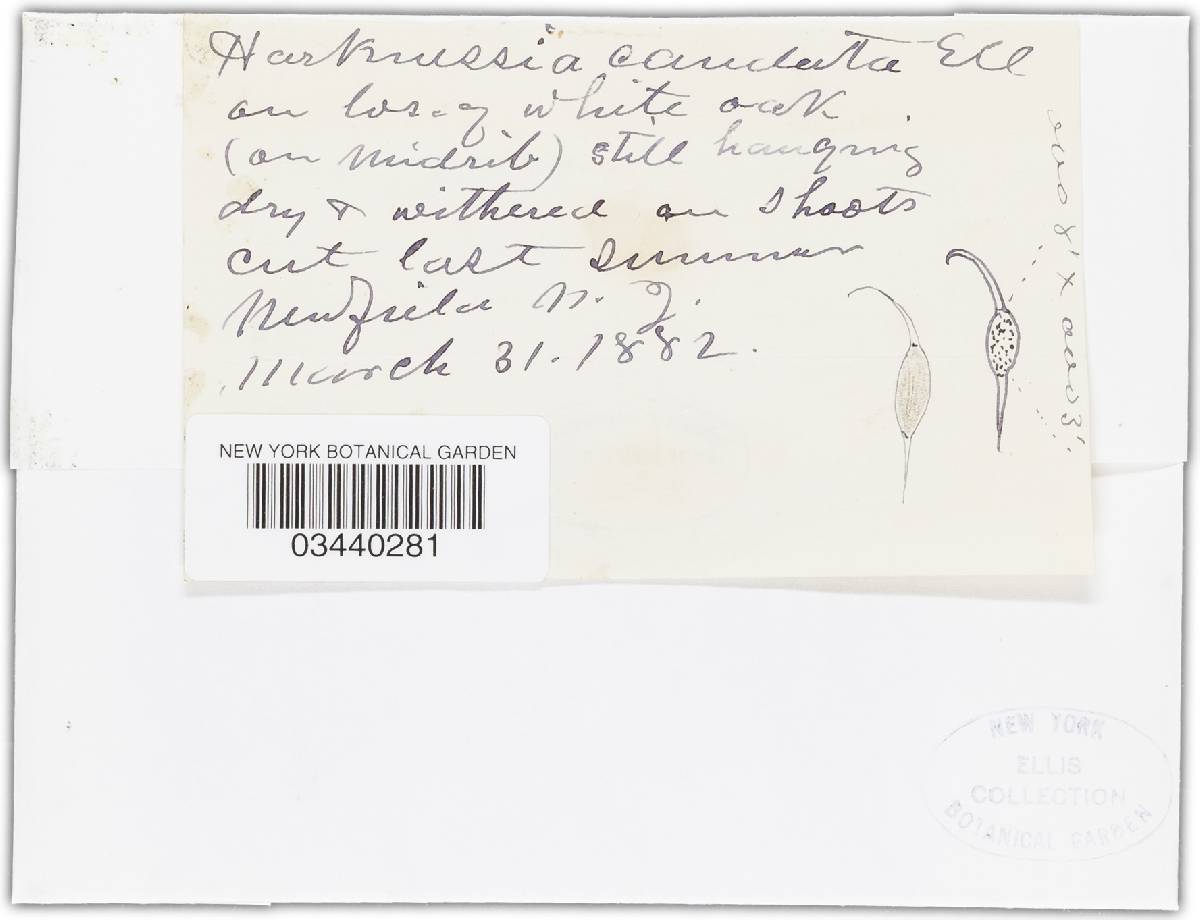 Harknessia caudata Ell
on lvs. of white oak
(on midrib) still hanging
dry & withered on shoots
cut last summer
Newfield N. J.
March 31. 1882.
.0008' X .0003'.
NEW YORK BOTANICAL GARDEN
03440281
NEW YORK
ELLIS
COLLECTION
BOTANICAL GARDEN